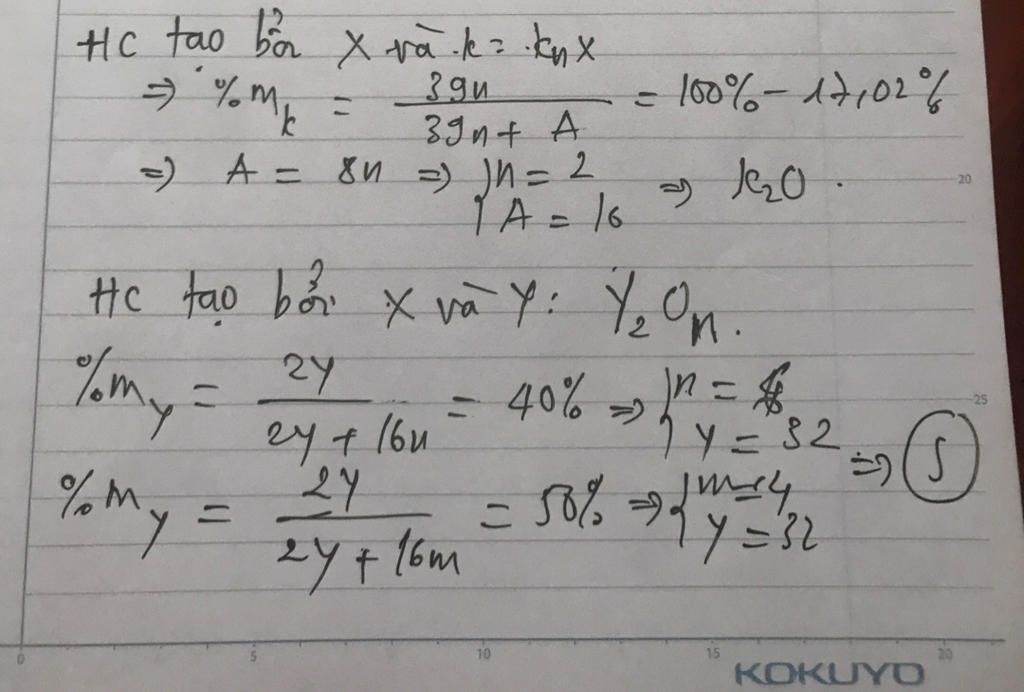 HC tạo bởi X và K = KnX
=> %mK = 39n / (39n + A) = 100% - 17,02%
=> A = 8n => { n = 2 A = 16 => K2O.
20
HC tạo bởi X và Y: Y2On.
%mY = 2Y / (2Y + 16n) = 40% => { n = 6 Y = 32
25
%mY = 2Y / (2Y + 16m) = 50% => { m = 4 Y = 32
=> S
0 5 10 15 20
KOKUYO